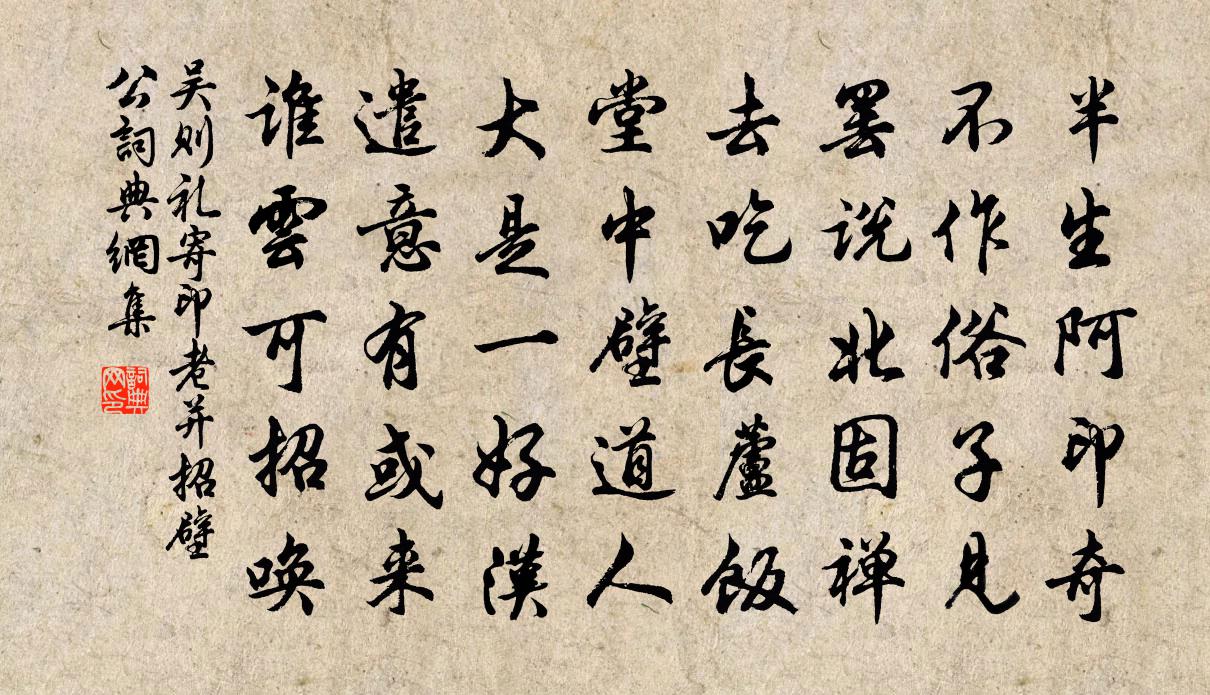 半生阿印奇
不作俗子見
罢説北固禅
去吃長蘆飯
堂中璧道人
大是一好漢
遣意有或来
谁雲可招唤
吴则礼寄印老并招璧
公詞典網集
詞典網印